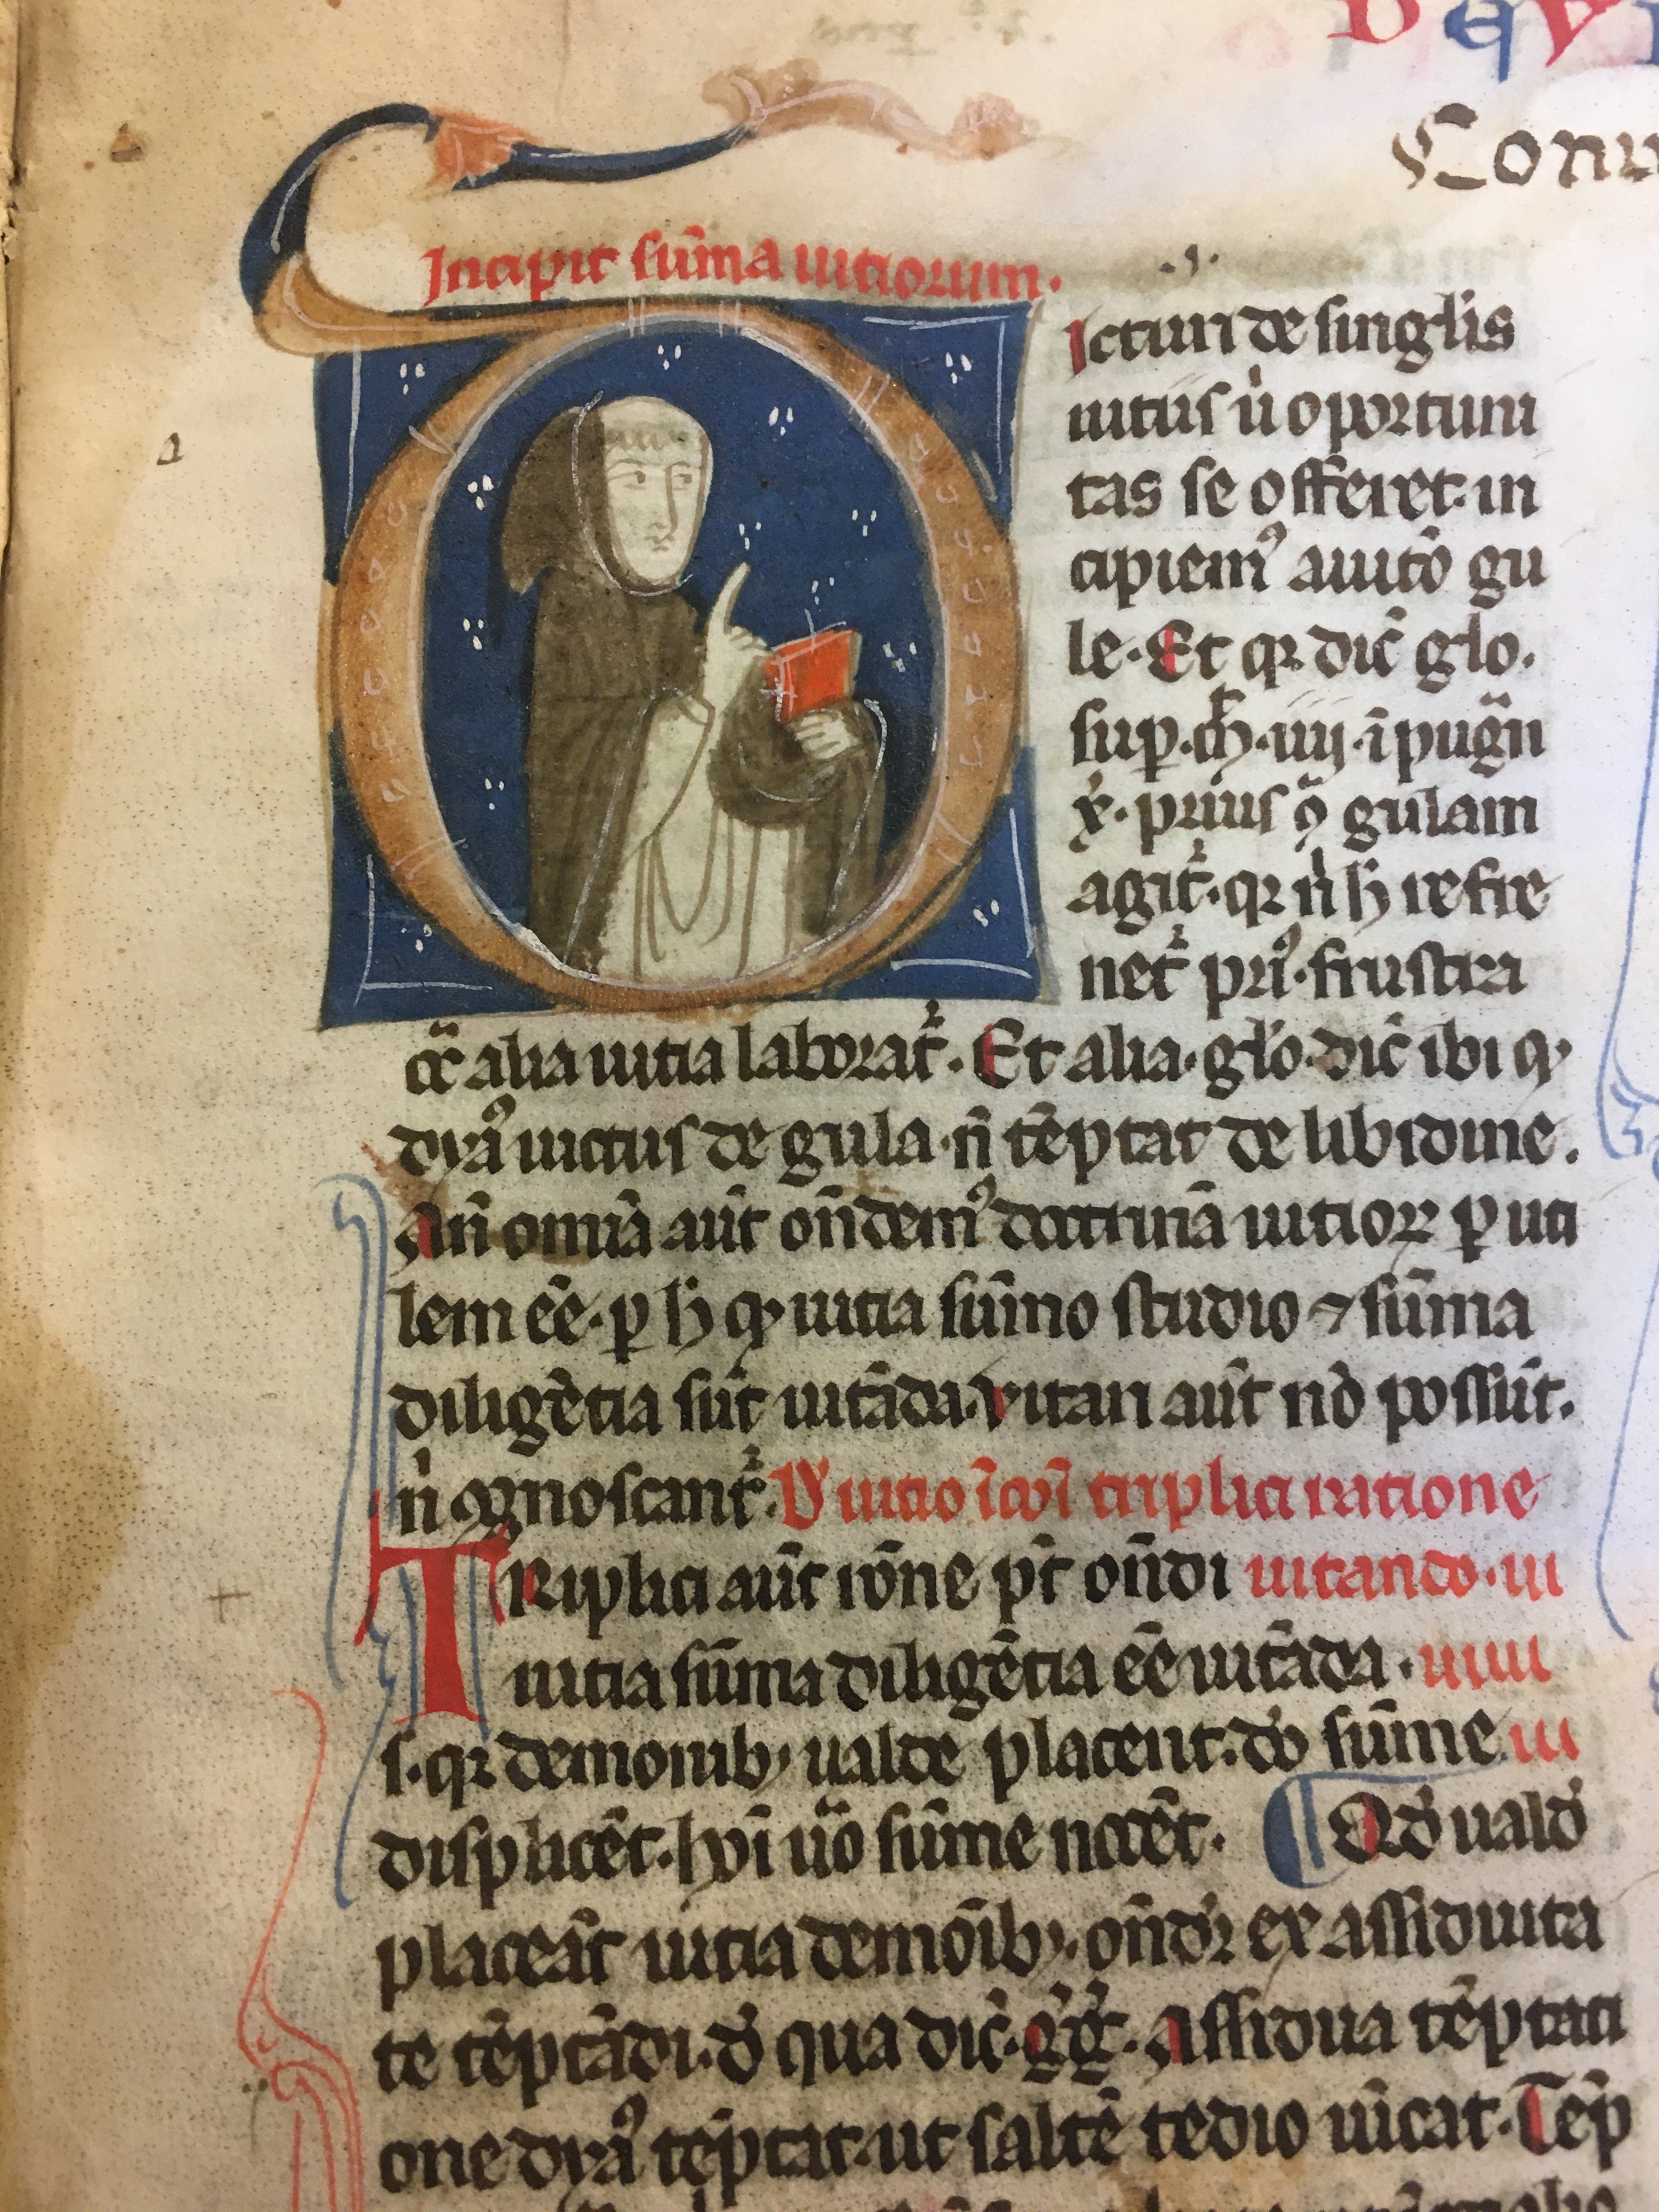 D E V I
Conu
Incipit sum̄a uitiorum.
.I.
Dicturi de singlis
uitiis ū oportuni
tas se offeret. in
cipiemꝰ a uitō gu
le. Et qꝛ dic̄ glo.
sup. ꝳ. iiij. ī pugn̄
x̓. prius ꝯ gulam
agit᷑. qꝛ n̄ h̄ refre
net᷑ priꝰ. frustra
cͣ alia uitia laborat᷑. Et alia. glō. dic̄ ibi ꝙ
dyaꝰ uictus de gula. n̄ tēptat de libidine.
An̄ omīa aūt on̄demꝰ doctrinā uitioꝝ ꝑ uti
lem eē. ꝑ h̄ ꝙ uitia sūmo studio ⁊ sūma
diligētia sūt uitāda. vitari aūt nō possūt.
n̄ cognoscant᷑. D̓ uitio īcōī triplici ratione
Triplici aūt rōne pt̄ on̄di uitando. ui
uitia sūma diligētia eē uitāda. 
s. qꝛ demonibꝫ ualde placent. dō sūme
displicēt. hōī ūo sūme nocēt. ¶ Qd̓ uald̓
placeāt uitia demōibꝫ. on̄dit᷑ ex assiduita
te tēptādi. d̓ qua dic̄. gͦg̓. Assidua tēptati
one dyaꝰ tēptat. ut saltē tedio uīcat. Tēp